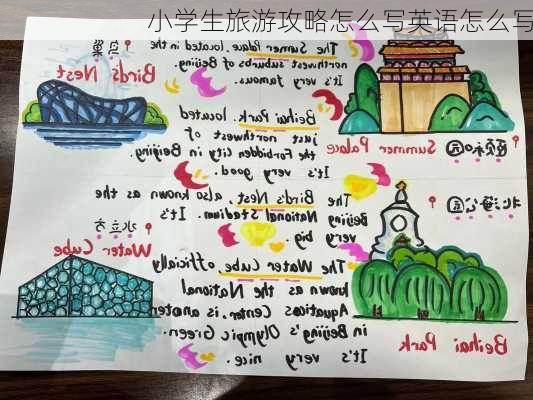 小学生旅游攻略怎么写英语怎么写
鸟巢
Bird's Nest
The Sumer Palace, located in the
northwest suburbs of Beijing.
It's very famous.
颐和园
Summer Palace
Beihai Park, located
just northwest of
the Forbidden City in Beijing
It's very good.
The Bird's Nest, also known as the
Beijing National Stadium. It's
very big.
北海公园
Beihai Park
水立方
Water Cube
The Water Cube, officially
known as the National
Aquatics Center, is
in Beijing's Olympic Green.
It's very nice.